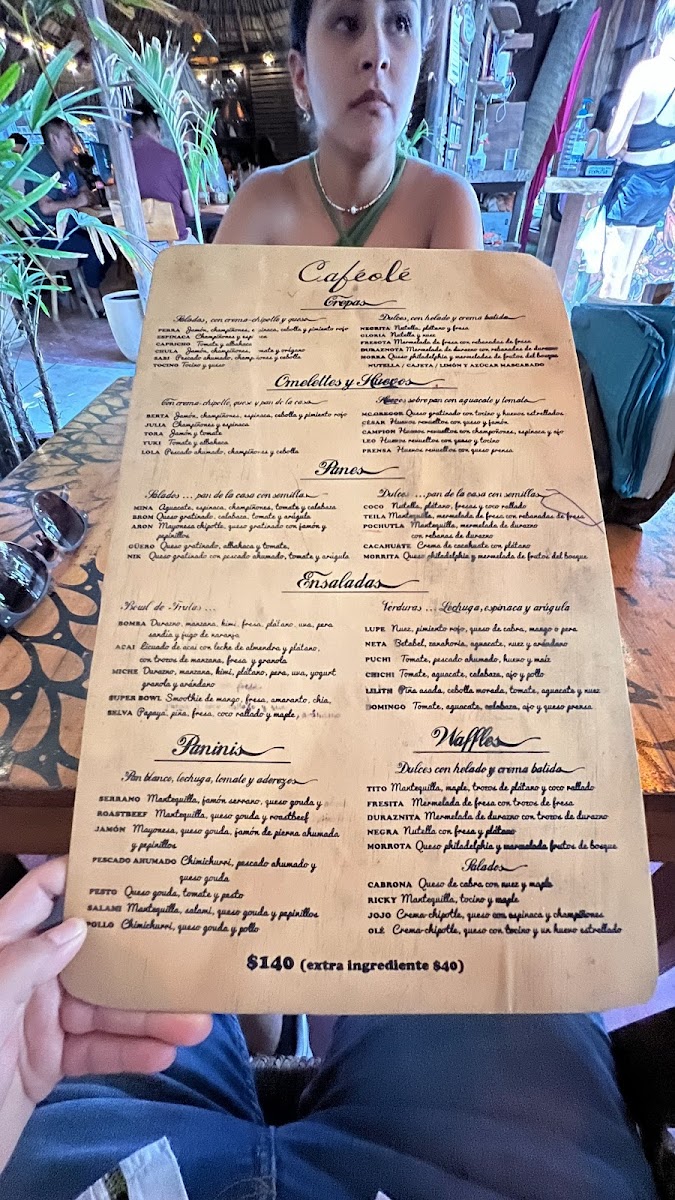 Caféolé
Crepas
Saladas, con crema-chipotle y queso
PERRA Jamón, champiñones, espinaca, cebolla y pimiento rojo
ESPINACA Champiñones y espinaca
CAPRICHO Tomate y albahaca
CHULA Jamón, champiñones, tomate y orégano
SARI Pescado ahumado, champiñones y cebolla
TOCINO Tocino y queso
Dulces, con helado y crema batida
NEGRITA Nutella, plátano y fresa
GLORIA Nutella y nuez
FRESOTA Mermelada de fresa con rebanadas de fresa
DURAZNOTA Mermelada de durazno con rebanadas de durazno
MORRA Queso philadelphia y mermeladas de frutos del bosque
NUTELLA / CAJETA / LIMÓN Y AZÚCAR MASCABADO
Omelettes y Huevos
Con crema-chipotle, queso y pan de la casa
BERTA Jamón, champiñones, espinaca, cebolla y pimiento rojo
JULIA Champiñones y espinaca
TORA Jamón y tomate
YUKI Tomate y albahaca
LOLA Pescado ahumado, champiñones y cebolla
Huevos sobre pan con aguacate y tomate
MC.GREGOR Queso gratinado con tocino y huevos estrellados
CÉSAR Huevos revueltos con queso y jamón
CAMPION Huevos revueltos con champoñones, espinaca y ajo
LEO Huevos revueltos con queso y tocino
PRENSA Huevos revueltos con queso prensa
Panes
Salados ... pan de la casa con semillas
MINA Aguacate, espinaca, champiñones, tomate y calabaza
BROM Queso gratinado, calabaza, tomate y arúgula
ARON Mayonesa chipotle, queso gratinado con jamón y
pepinillos
GÜERO Queso gratinado, albahaca y tomate,
NIK Queso gratinado con pescado ahumado, tomate y arúgula
Dulces ... pan de la casa con semillas
COCO Nutella, plátano, fresas y coco rallado
TEILA Mantequilla, mermelada de fresa con rebanadas de fresa
POCHUTLA Mantequilla, mermelada de durazno
con rebanas de durazno
CACAHUATE Crema de cacahuate con plátano
MORRITA Queso philadelphia y mermelada de frutos del bosque
Ensaladas
Bowl de Frutas ...
BOMBA Durazno, manzana, kiwi, fresa, plátano, uva, pera
sandía y jugo de naranja
ACAI Licuado de acai con leche de almendra y plátano,
con trozos de manzana, fresa y granola
MICHE Durazno, manzana, kiwi, plátano, pera, uva, yogurt
granola y arándano
SUPER BOWL Smoothie de mango, fresa, amaranto, chia,
SELVA Papaya, piña, fresa, coco rallado y maple,
Verduras ... Lechuga, espinaca y arúgula
LUPE Nuez, pimiento rojo, queso de cabra, mango o pera
NETA Betabel, zanahoria, aguacate, nuez y arándano
PUCHI Tomate, pescado ahumado, huevo y maíz
CHICHI Tomate, aguacate, calabaza, ajo y pollo
LILITH Piña asada, cebolla morada, tomate, aguacate y nuez
DOMINGO Tomate, aguacate, calabaza, ajo y queso prensa
Paninis
Pan blanco, lechuga, tomate y aderezos
SERRANO Mantequilla, jamón serrano, queso gouda y
ROASTBEEF Mantequilla, queso gouda y roastbeef
JAMÓN Mayonesa, queso gouda, jamón de pierna ahumada
y pepinillos
PESCADO AHUMADO Chimichurri, pescado ahumado y
queso gouda
PESTO Queso gouda, tomate y pesto
SALAMI Mantequilla, salami, queso gouda y pepinillos
POLLO Chimichurri, queso gouda y pollo
Waffles
Dulces con helado y crema batida
TITO Mantequilla, maple, trozos de plátano y coco rallado
FRESITA Mermelada de fresa con trozos de fresa
DURAZNITA Mermelada de durazno con trozos de durazno
NEGRA Nutella con fresa y plátano
MORROTA Queso philadelphia y mermelada frutos de bosque
Salados
CABRONA Queso de cabra con nuez y maple
RICKY Mantequilla, tocino y maple
JOJO Crema-chipotle, queso con espinaca y champiñones
OLÉ Crema-chipotle, queso con tocino y un huevo estrellado
$140 (extra ingrediente $40)